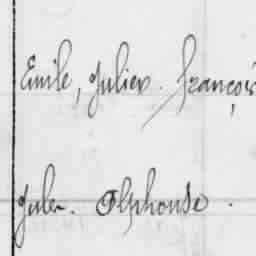 Emile, Julien. François
Jules. Alphonse.